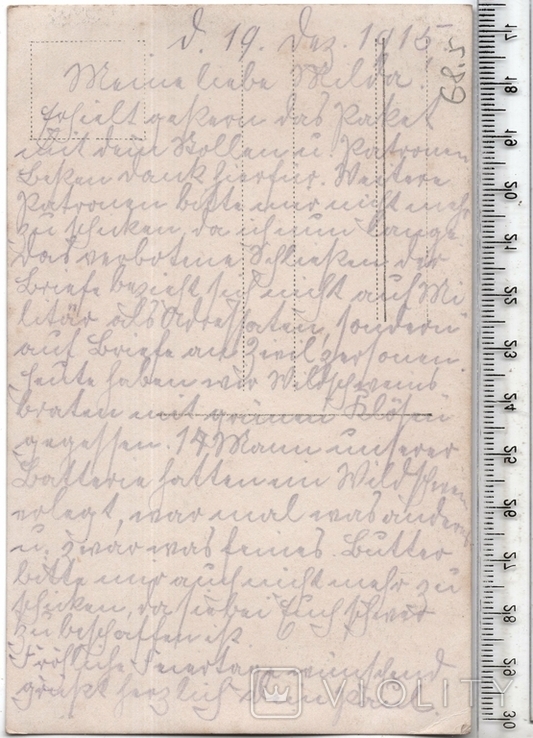 d. 19. Dez. 1915
68.5
Meine liebe Milda!
Erhielt gestern das Paket
mit dem Stollen u. Patronen
besten Dank hierfür. Weitere
Patronen bitte mir nicht mehr
zu schicken, da ich nun lange
Das verbotene Schließen der
Briefe bezieht sich nicht auf Mi
litär als Adressaten, sondern
auf Briefe an Zivilpersonen.
Heute haben wir Wildschweins
braten mit grünen Klößen
gegessen. 14 Mann unserer
Batterie hatten ein Wildschwein
erlegt, war mal was anderes
u. zwar was feines. Butter
bitte mir auch nicht mehr zu
schicken, da sie bei Euch schwer
zu beschaffen ist.
Fröhliche Feiertage wünschend
grüßt herzlich Dein
VIOLITY
17
18
19
20
21
22
23
24
25
26
27
28
29
30